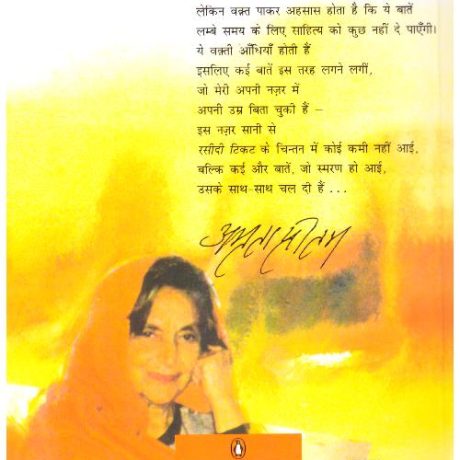 लेकिन वक़्त पाकर अहसास होता है कि ये बातें
लम्बे समय के लिए साहित्य को कुछ नहीं दे पाएँगी।
ये वक़्ती आँधियाँ होती हैं
इसलिए कई बातें इस तरह लगने लगीं,
जो मेरी अपनी नज़र में
अपनी उम्र बिता चुकी हैं –
इस नज़र सानी से
रसीदी टिकट के चिन्तन में कोई कमी नहीं आई,
बल्कि कई और बातें, जो स्मरण हो आईं,
उसके साथ-साथ चल दी हैं ...
अमृता प्रीतम